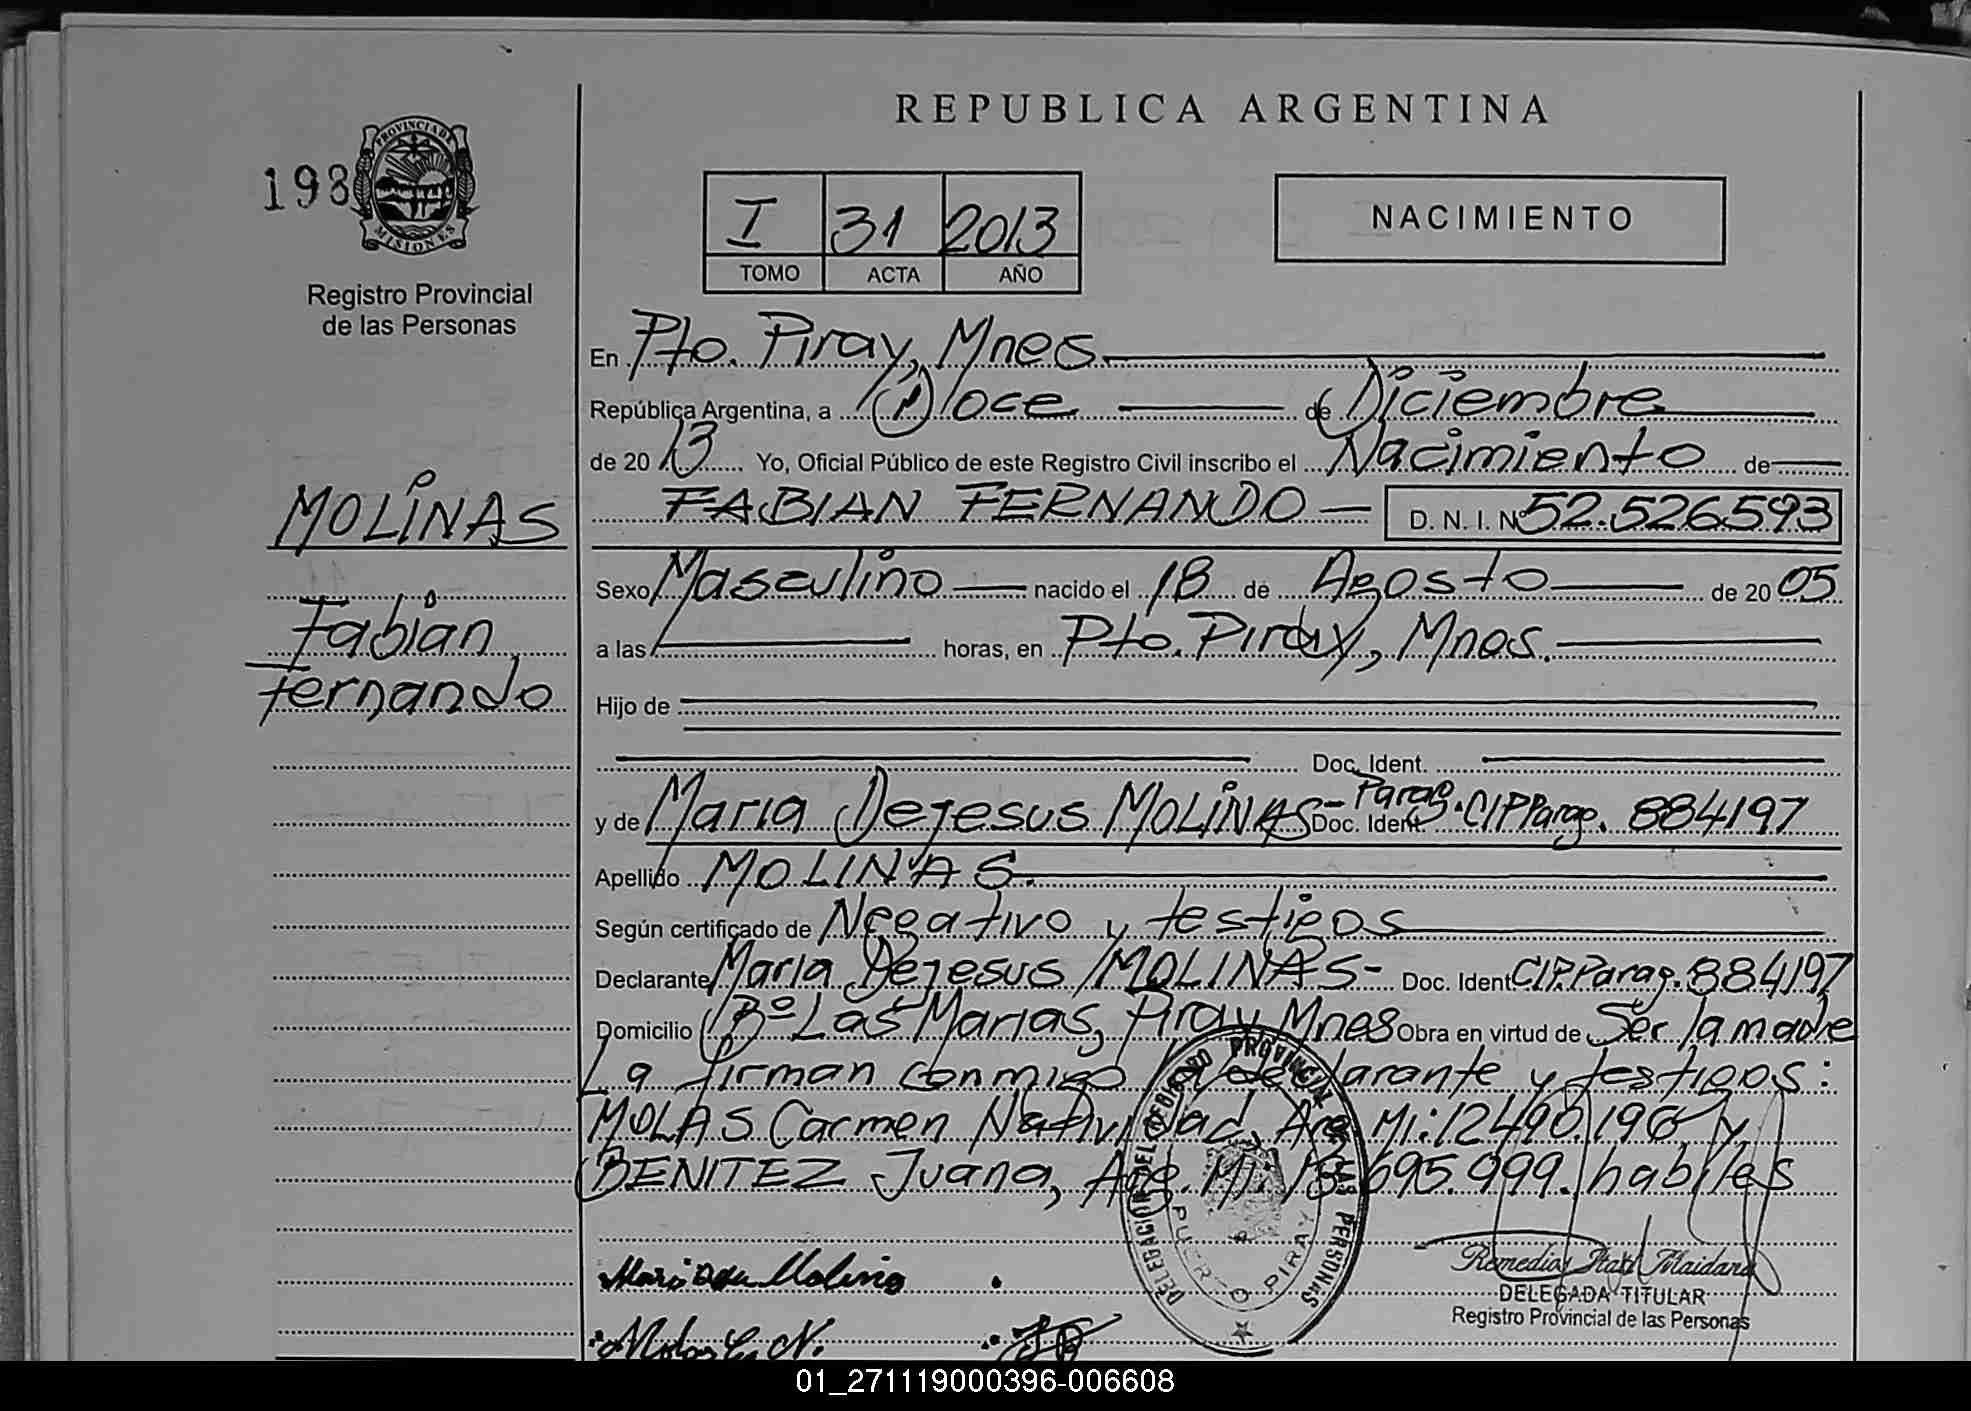 REPUBLICA ARGENTINA
198
PROVINCIA DE
MISIONES
Registro Provincial
de las Personas
I 31 2013
TOMO ACTA AÑO
NACIMIENTO
En Pto. Piray, Mnes.
República Argentina, a Doce de Diciembre
de 20 13 Yo, Oficial Público de este Registro Civil inscribo el Nacimiento de
MOLINAS
Fabian
Fernando
FABIAN FERNANDO D. N. I. Nº 52.526.593
Sexo Masculino nacido el 18 de Agosto de 20 05
a las horas, en Pto. Piray, Mnes.
Hijo de
Doc. Ident.
y de Maria Dejesus MOLINAS- Parag. Doc. Ident. CIPParag. 884197
Apellido MOLINAS.
Según certificado de Negativo y testigos
Declarante Maria Dejesus MOLINAS- Doc. Ident CIP.Parag. 884197
Domicilio Bº Las Marias, Piray Mnes Obra en virtud de Ser la madre
La firman conmigo declarante y testigos:
MOLAS Carmen Natividad, Arg Mi: 12490.196 y
BENITEZ Juana, Arg. Mi. 18695.999. habiles
DELEGACION DEL REGISTRO PROVINCIAL DE LAS PERSONAS
PUERTO PIRAY
Molas C. N.
DELEGADA TITULAR
Registro Provincial de las Personas
01_271119000396-006608